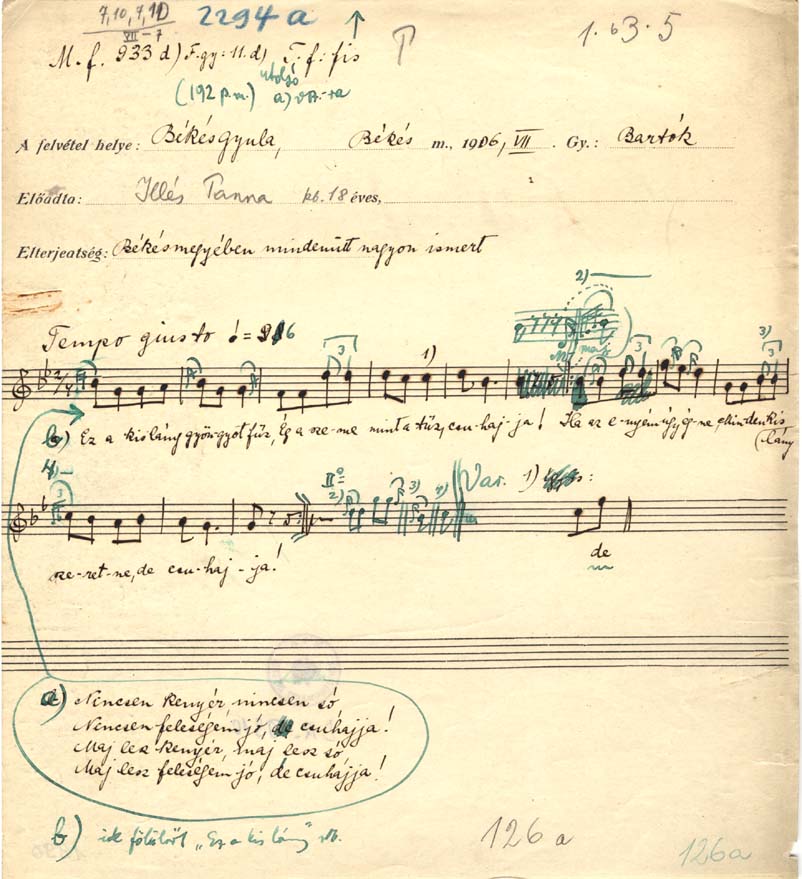 7, 10, 7, 10
VII – 7
2294 a
1. 63. 5
M. f. 933 d) F. gy: 11. d) T. f: fis
T
utolsó
(192 p.m.) a) vsz.-ra
A felvétel helye: Békésgyula, Békés m., 1906, VII. Gy.: Bartók
Előadta: Illés Panna kb. 18 éves,
Elterjeatség: Békésmegyében mindenütt nagyon ismert
2)
Tempo giusto
3
1)
3
3)
3
b) Ez a kislány gyöngyöt fűz, Ég a sze-me mint a tűz, csu-haj-ja! Ha az e-nyém úgy ég-ne, Minden kis
(lány
4)
3
II
2)
3)
4)
Var. 1)
sze-ret-ne, de csu-haj-ja!
de
a) Nincsen kenyér, nincsen só
Nincsen feleségem jó, de csuhajja!
Maj lesz kenyér, maj lesz só
Maj lesz feleségem jó, de csuhajja!
b) ide fölülről „Ez a kislány" stb.
126 a
126a